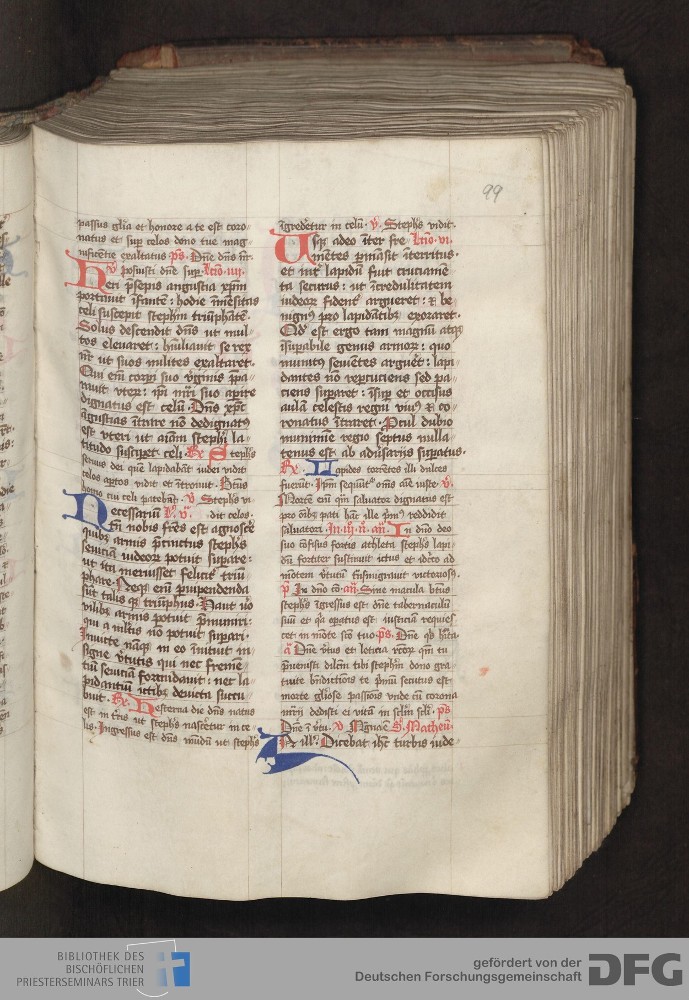 99
passus gl̄ia et honore a te est coro
natus et sup̄ celos dono tue mag
nificētie exaltatus p̄s. Dn̄e dn̄s nr̄
v̄ posuisti dn̄e sup̄. lc̄io. iiij.
Heri p̄sepis angustia xp̄m
portauit īfantē: hodie īmēsitas
celi suscepit stephm̄ triūphātē.
Solus descendit dn̄s ut mul
tos eleuaret: hūiliauit se rex
nr̄ ut suos milites exaltaret.
Qui em̄ corp̄i suo v̄ginis
vterū: ip̄i mr̄i suo apire
dignatus est celū. Dn̄s xp̄c
āgustias ītrare nō dedignatꝰ
est vteri ut aīam stephi la
titudo susciperet celi. Rx̄ Stephs
seruus dei quē lapidabāt iudei vidit
celos aptos vidit et ītroiuit. Btūs
homo cui celi patebāt. v̄ Stephs vi
Necessariū dit celos.
nobis frēs est agnosce
quibꝫ armis p̄cinctus stephs
seuiciā iudeoꝝ potuit supare:
ut ita meruisset felicit̄ triū
phare. Neqꝫ em̄ p̄uipendenda
sūt talis triūphus. Haut
vilibꝫ armis potuit p̄muniri
qui a ml̄tis nō potuit supari.
Inuicte nāqꝫ in eo īnituit in
signe v̄tutis qui nec fremē
tiū seuiciā formidauit: nec la
pidantiū ictibꝫ deuicta succu
buit. Rx̄. Hesterna die dn̄s natus
est in tr̄is ut stephs nascēt̄ur in ce
lis. Ingressus est dn̄s mūdū ut stephs
īgredēt̄ur in celū. v̄. Stephs vidit.
Usqꝫ adeo īter fre lc̄io. vi.
mētes p̄māsit īterritus.
et int̄ lapidū fuit cruciamē
ta securus: ut īcredulitatem
iudeoꝝ fident̄ argueret: ⁊ be
nignꝰ pro lapidātibꝫ exoraret.
Qd̄ est ergo tam magnū atqꝫ
īsupabile genus armoꝝ: quo
munitꝰ seuiētes arguet̄: lapi
dantes nō repuciens sed pa
ciens suparet: īsup̄ et occisus
aulā celestis regni viuꝰ ⁊ co
ronatus ītraret. Pcul dubio
muninīe regio septus nulla
tenus est ab adūsariis supatus.
Rx̄. Lapides torrētes illi dulces
fuerūt. Ip̄m sequūt̄ om̄s aīe iuste. v̄.
Mortē em̄ qm̄ saluator dignatus est
pro oībꝫ pati hāc ille p̄mꝰ reddidit
saluatori. In. iij. n̄. an̄. In dn̄o deo
suo cōfisus fortis athleta stephs lapi
dū fortiter sustinuit ictus et idcō ad
mōtem v̄tutū trāsmigrauit victoriosꝰ.
p̄ In dn̄o cō. an̄. Sine macula btūs
stephs īgressus est dn̄e tabernaculū
tuū et qa opatus est iusticiā requies
cet in mōte scō tuo. p̄s. Dn̄e qs hīta.
a Dn̄e v̄tus et leticia rcōꝝ qm̄ tu
p̄uenisti dilcm̄ tibi stephm̄ dono gra
tuite bn̄dictiōis te p̄mū secutus est
morte gliose passiōis vnde cū corona
mr̄ij dedisti ei vitā in sclm̄ scli. p̄s
Dn̄e ī v̄tu. v̄ Magna ē S. Matheū.
In illꝰ. Dicebat ihc̄ turbis iude
BIBLIOTHEK DES
BISCHÖFLICHEN
PRIESTERSEMINARS TRIER
gefördert von der
Deutschen Forschungsgemeinschaft
DFG